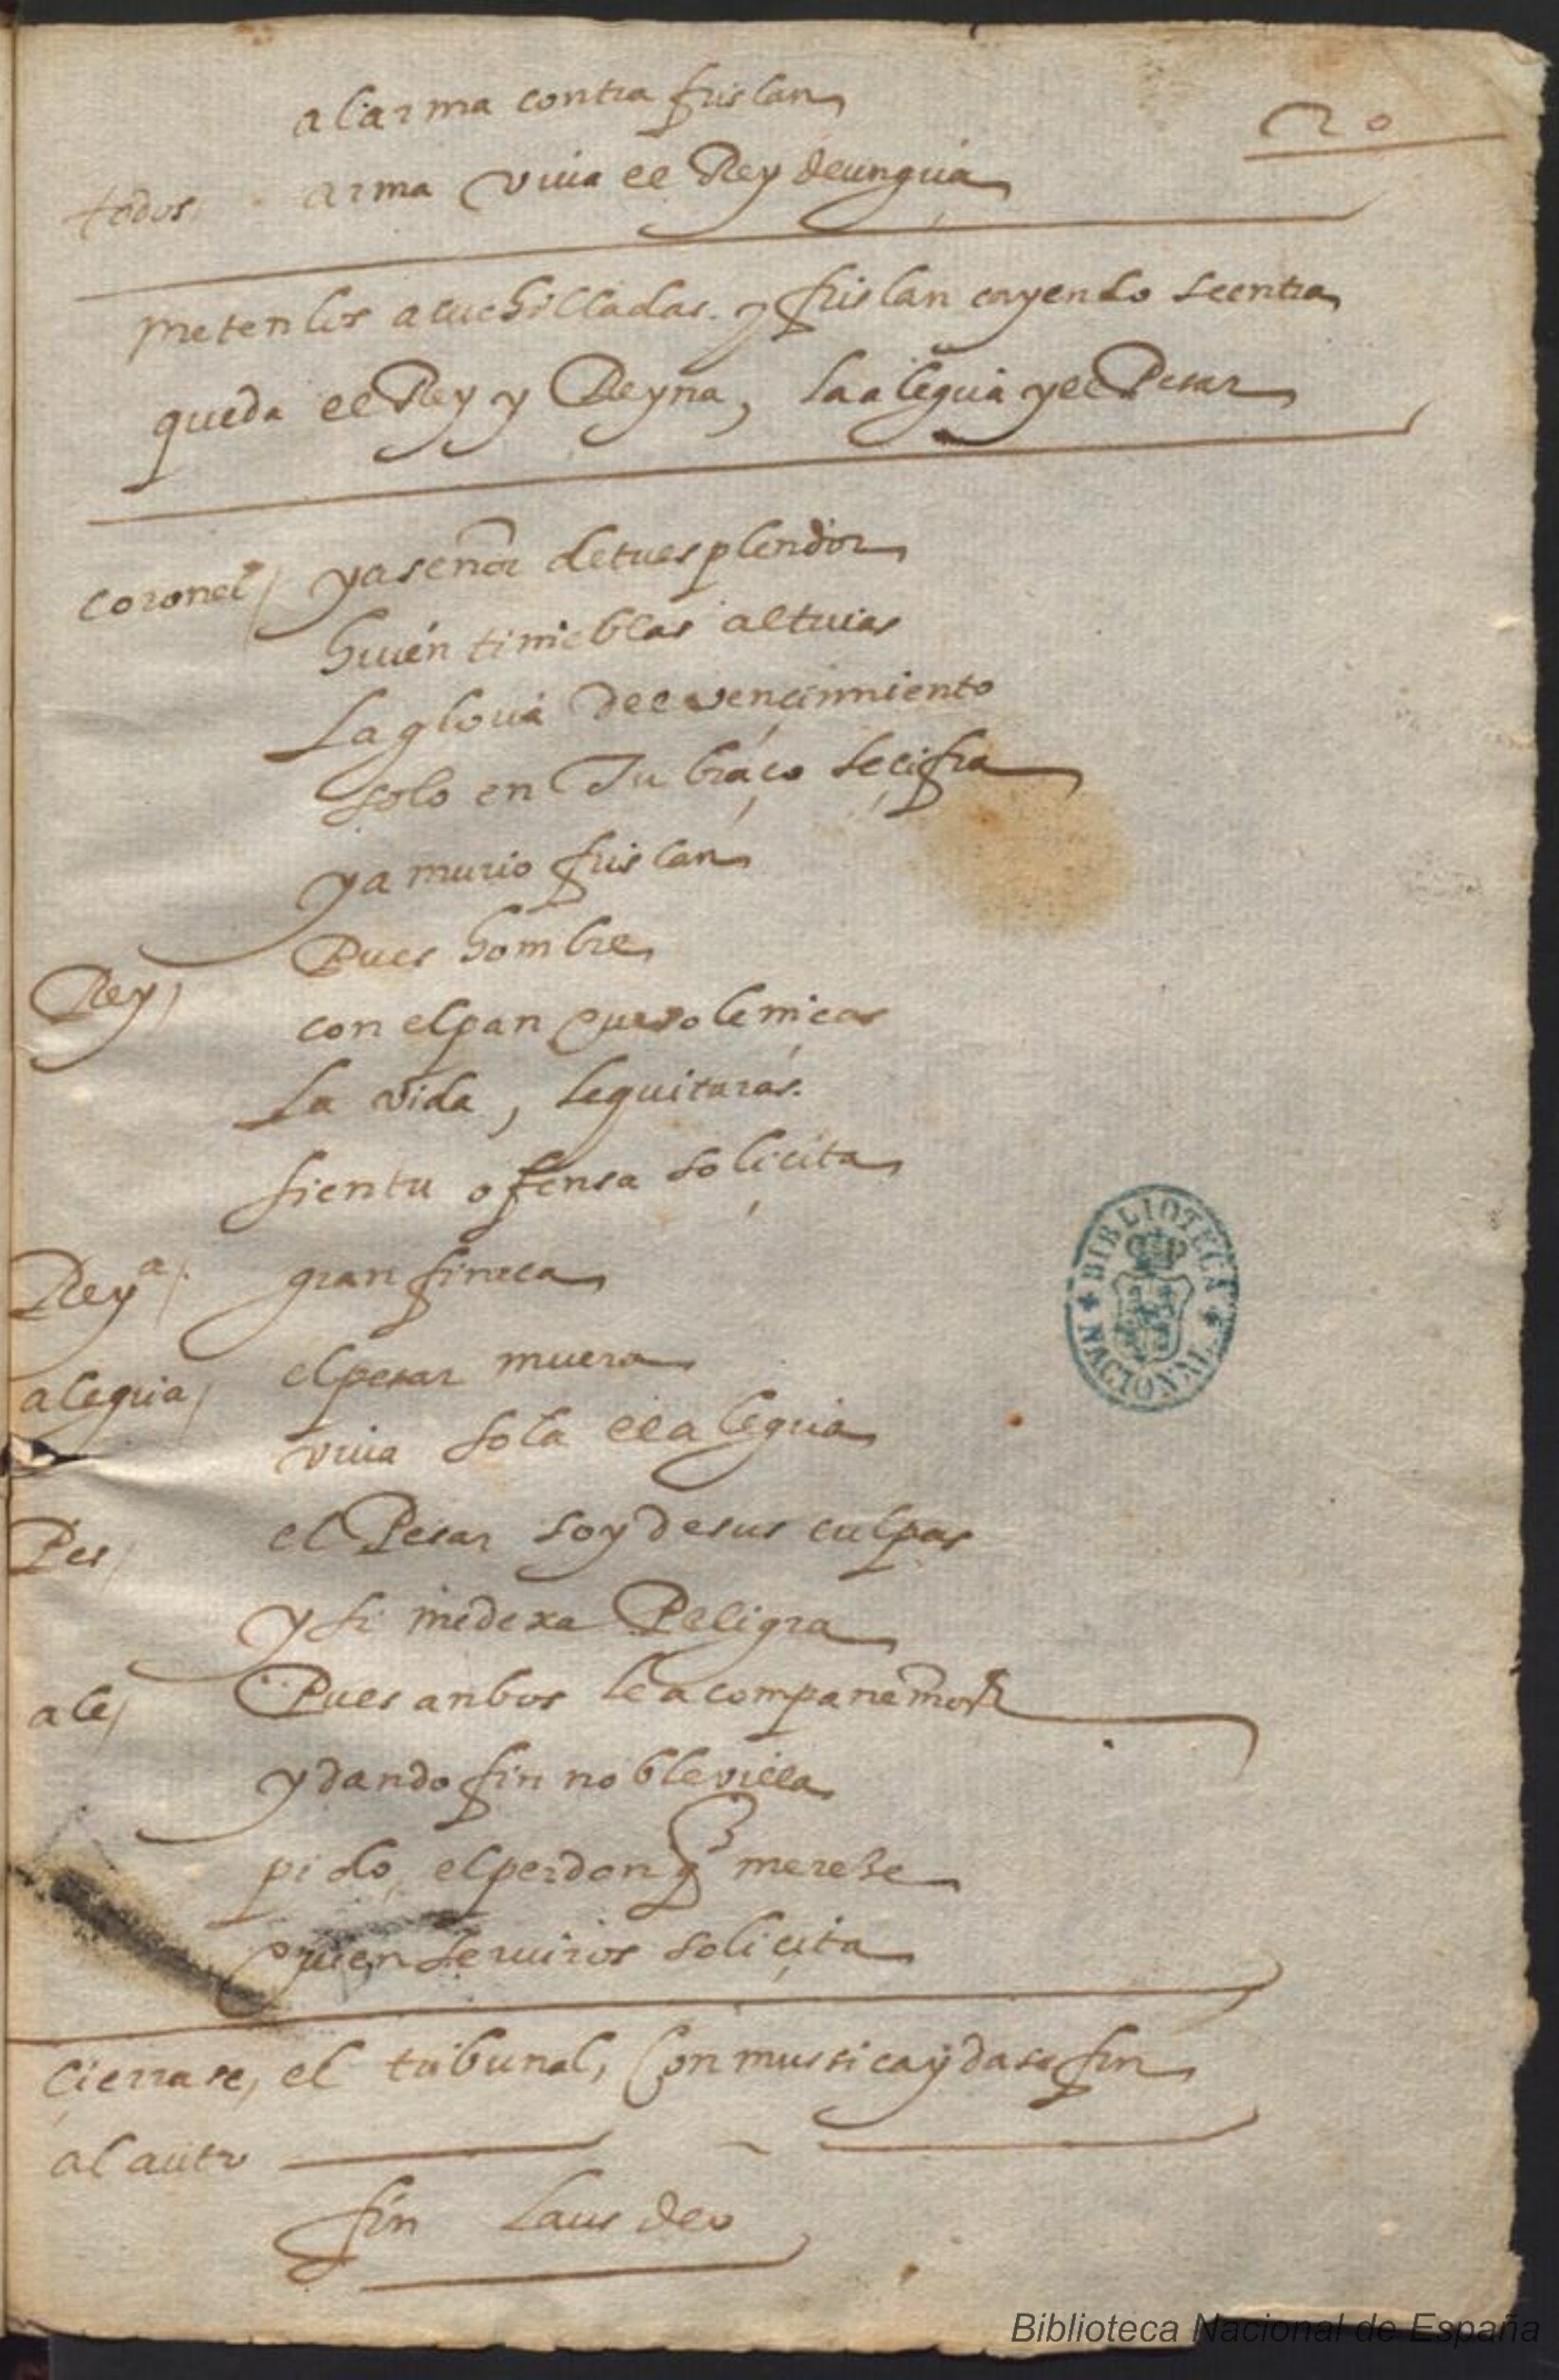 al arma contra frislan
20
todos, arma viua el Rey deungria
metenlos acuchilladas. y frislan cayendo seentra
queda el Rey y Reyna, la alegria y el Pesar
coronel / ya señor detuesplendor
huuén tinieblas altiuas
La gloria del vençimiento
solo en Tu braço seçifra
ya murio frislan
Rey / Pues hombre
con elpan
La vida, lequitarás.
sientu ofensa soliçita
Reyª / gran fineça
alegria / elpesar muera
viua sola el alegria
Pes / el Pesar soy desus culpas
y si medexa Peligra
ale / Pues anbos le acompañemos
y dando fin noble villa
pido, elperdon q̃ mereze
quien seruiros soliçita
Çierrase, el tribunal, Con mussica y dase fin
al auto
fin Laus deo
BIBLIOTECA NACIONAL
Biblioteca Nacional de España